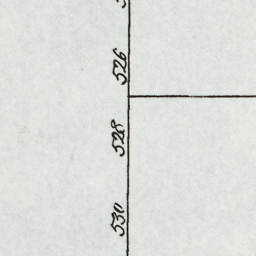 526
528
530